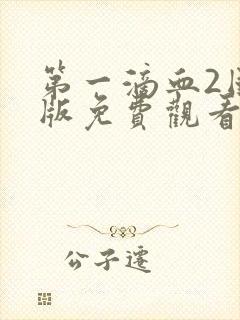 第一滴血2国
版免費觀看
公子遷